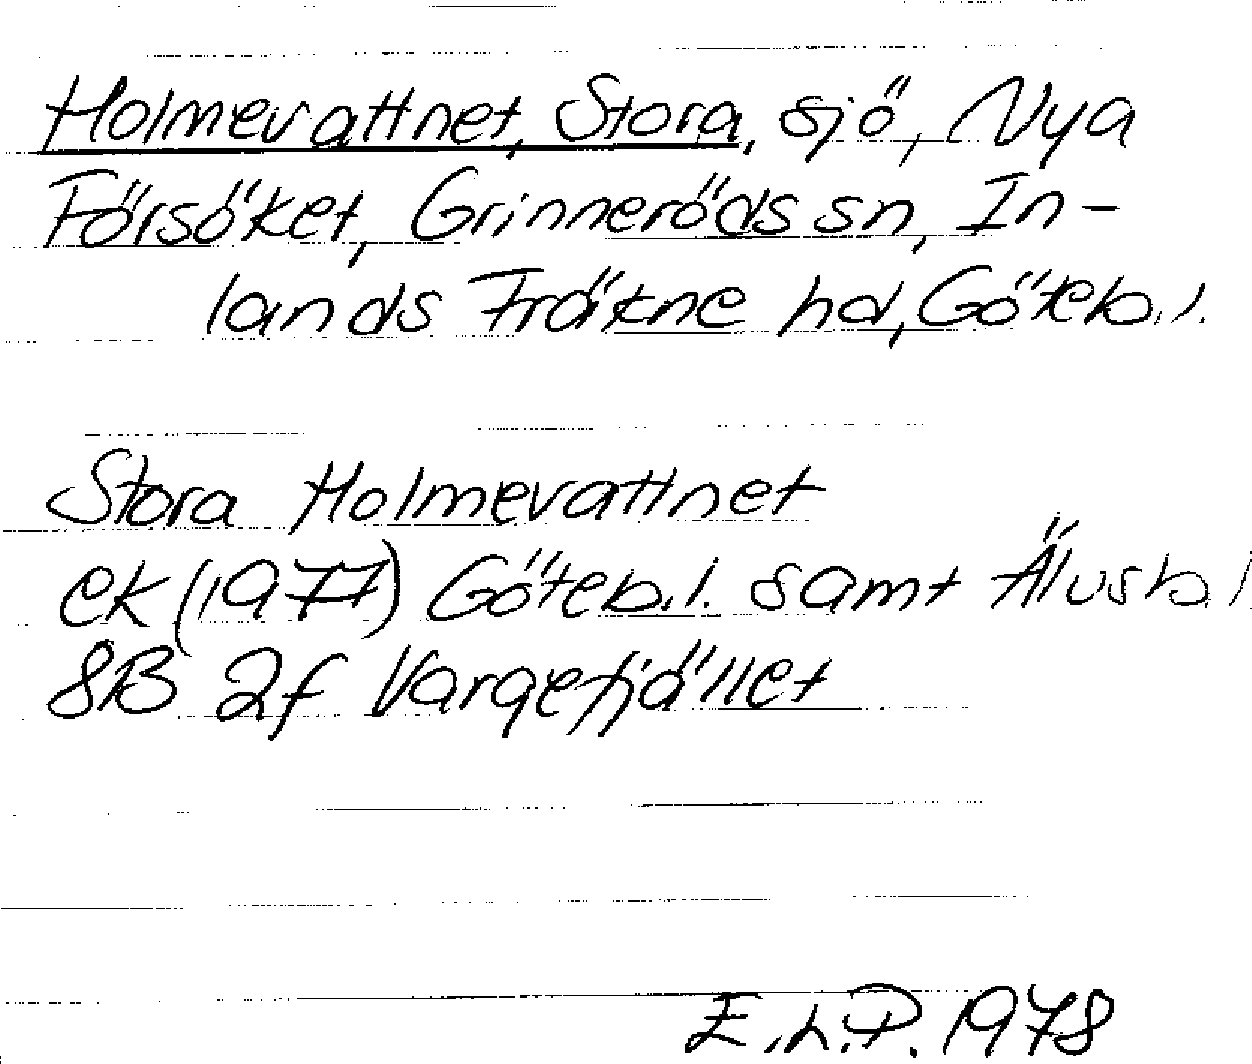 Holmevattnet, Stora, sjö, Nya
Försöket, Grinneröds sn, In-
lands Fräkne hd, Göteb. l.
Stora Holmevattnet
ek (1977) Göteb. l. samt Älvsb l
8B 2f Vargefjället
E.L.P. 1978